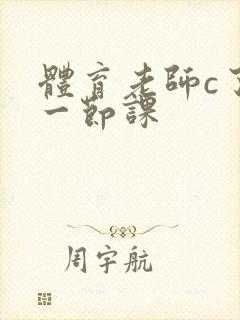 體育老師c了
一節課
周宇航